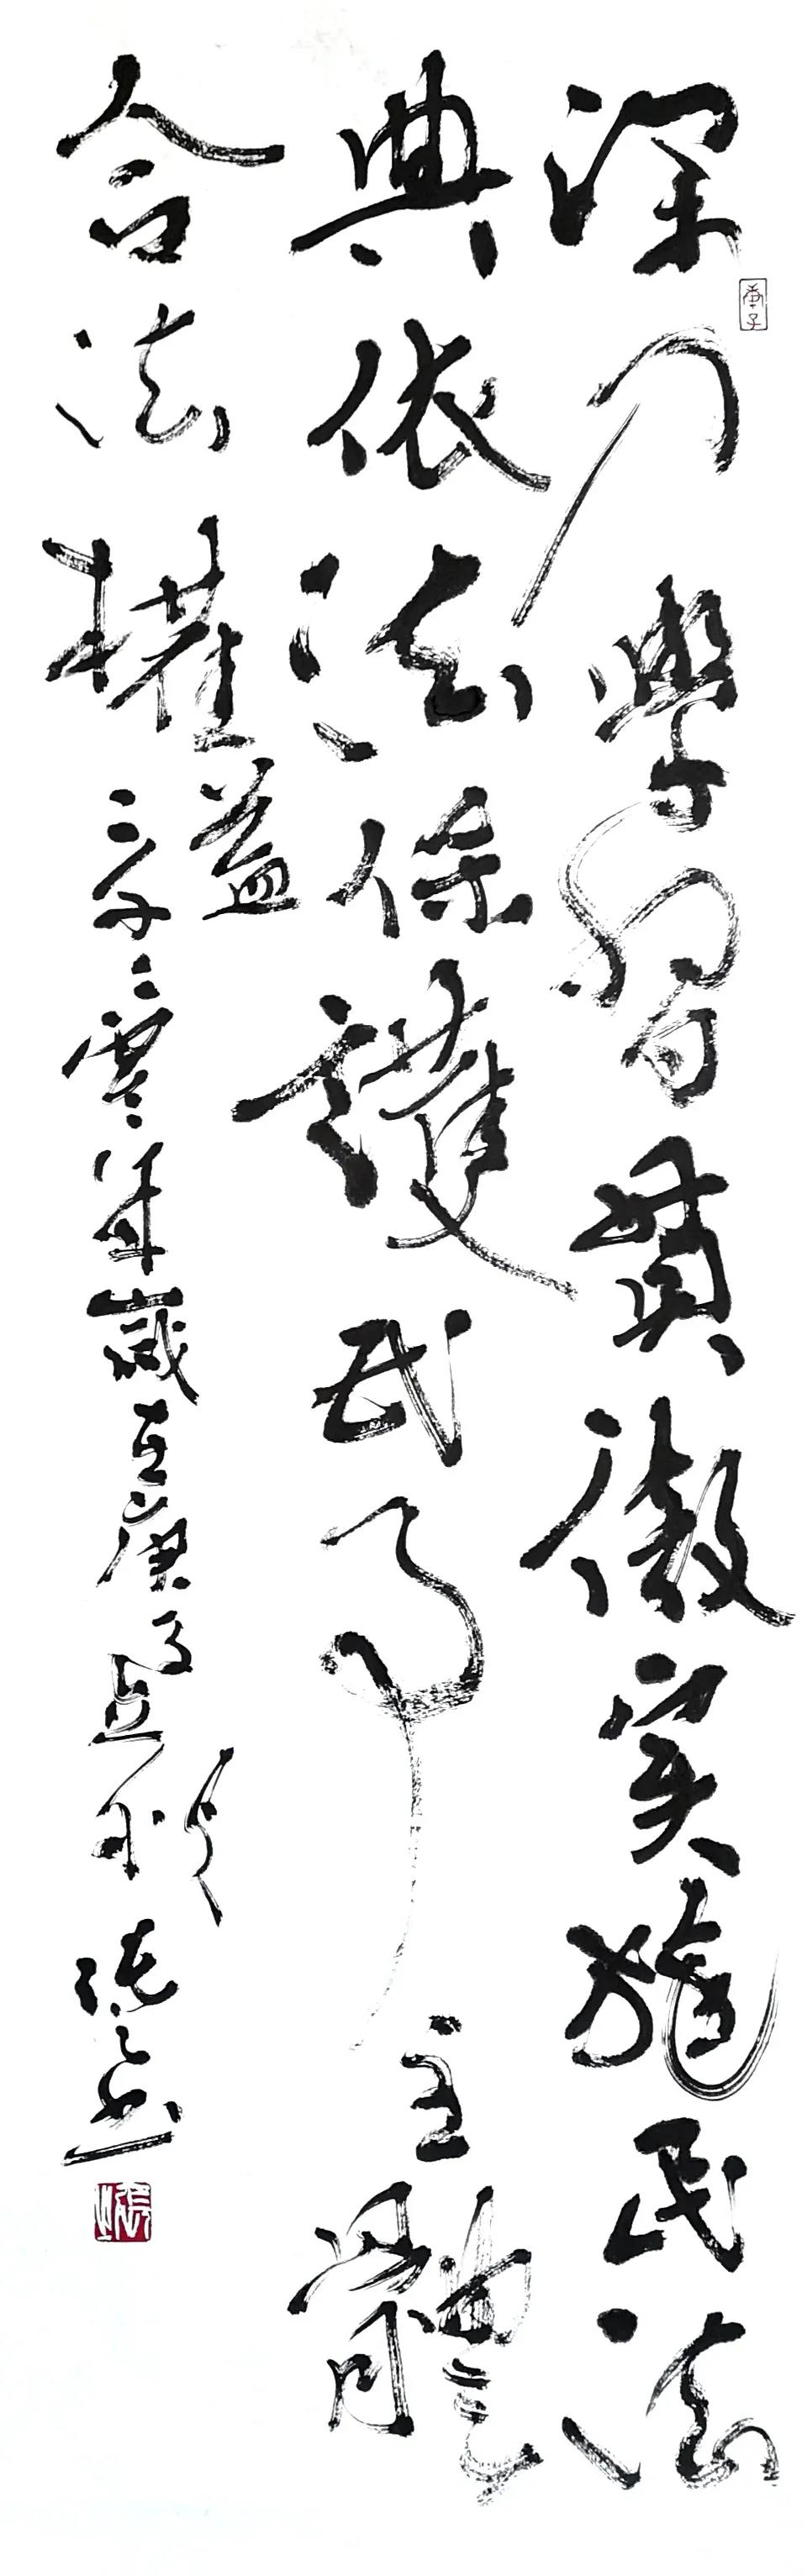 深入學習貫徹实施民法
庚子
典依法保護民事主體
合法權益
二零二零年歲在庚子立秋